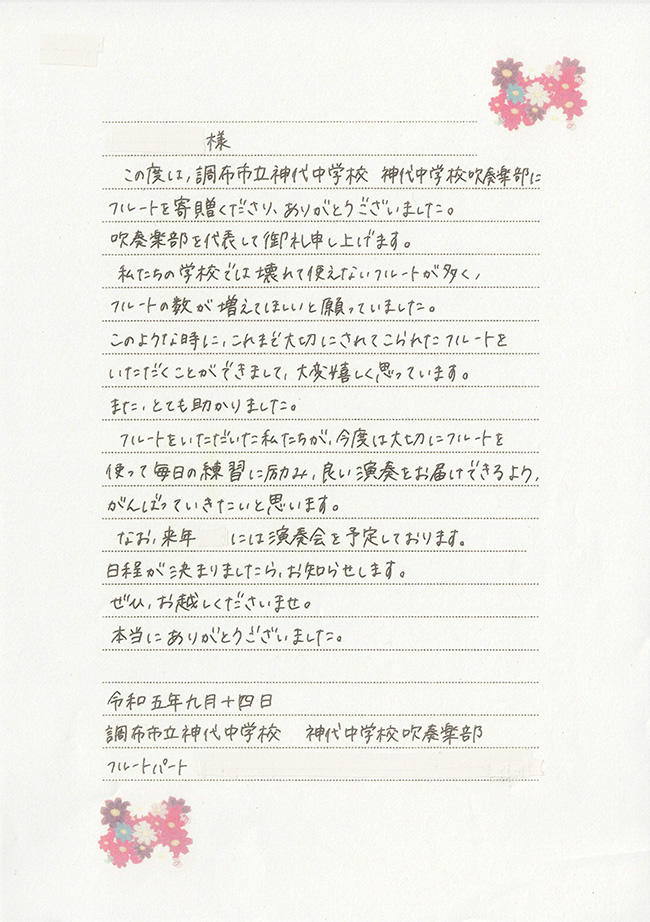 様
この度は、調布市立神代中学校 神代中学校吹奏楽部に
フルートを寄贈くださり、ありがとうございました。
吹奏楽部を代表して御礼申し上げます。
私たちの学校では壊れて使えないフルートが多く、
フルートの数が増えてほしいと願っていました。
このような時に、これまで大切にされてこられたフルートを
いただくことができまして、大変嬉しく思っています。
また、とても助かりました。
フルートをいただいた私たちが、今度は大切にフルートを
使って毎日の練習に励み、良い演奏をお届けできるよう、
がんばっていきたいと思います。
なお、来年 には演奏会を予定しております。
日程が決まりましたら、お知らせします。
ぜひ、お越しくださいませ。
本当にありがとうございました。
令和五年九月十四日
調布市立神代中学校 神代中学校吹奏楽部
フルートパート